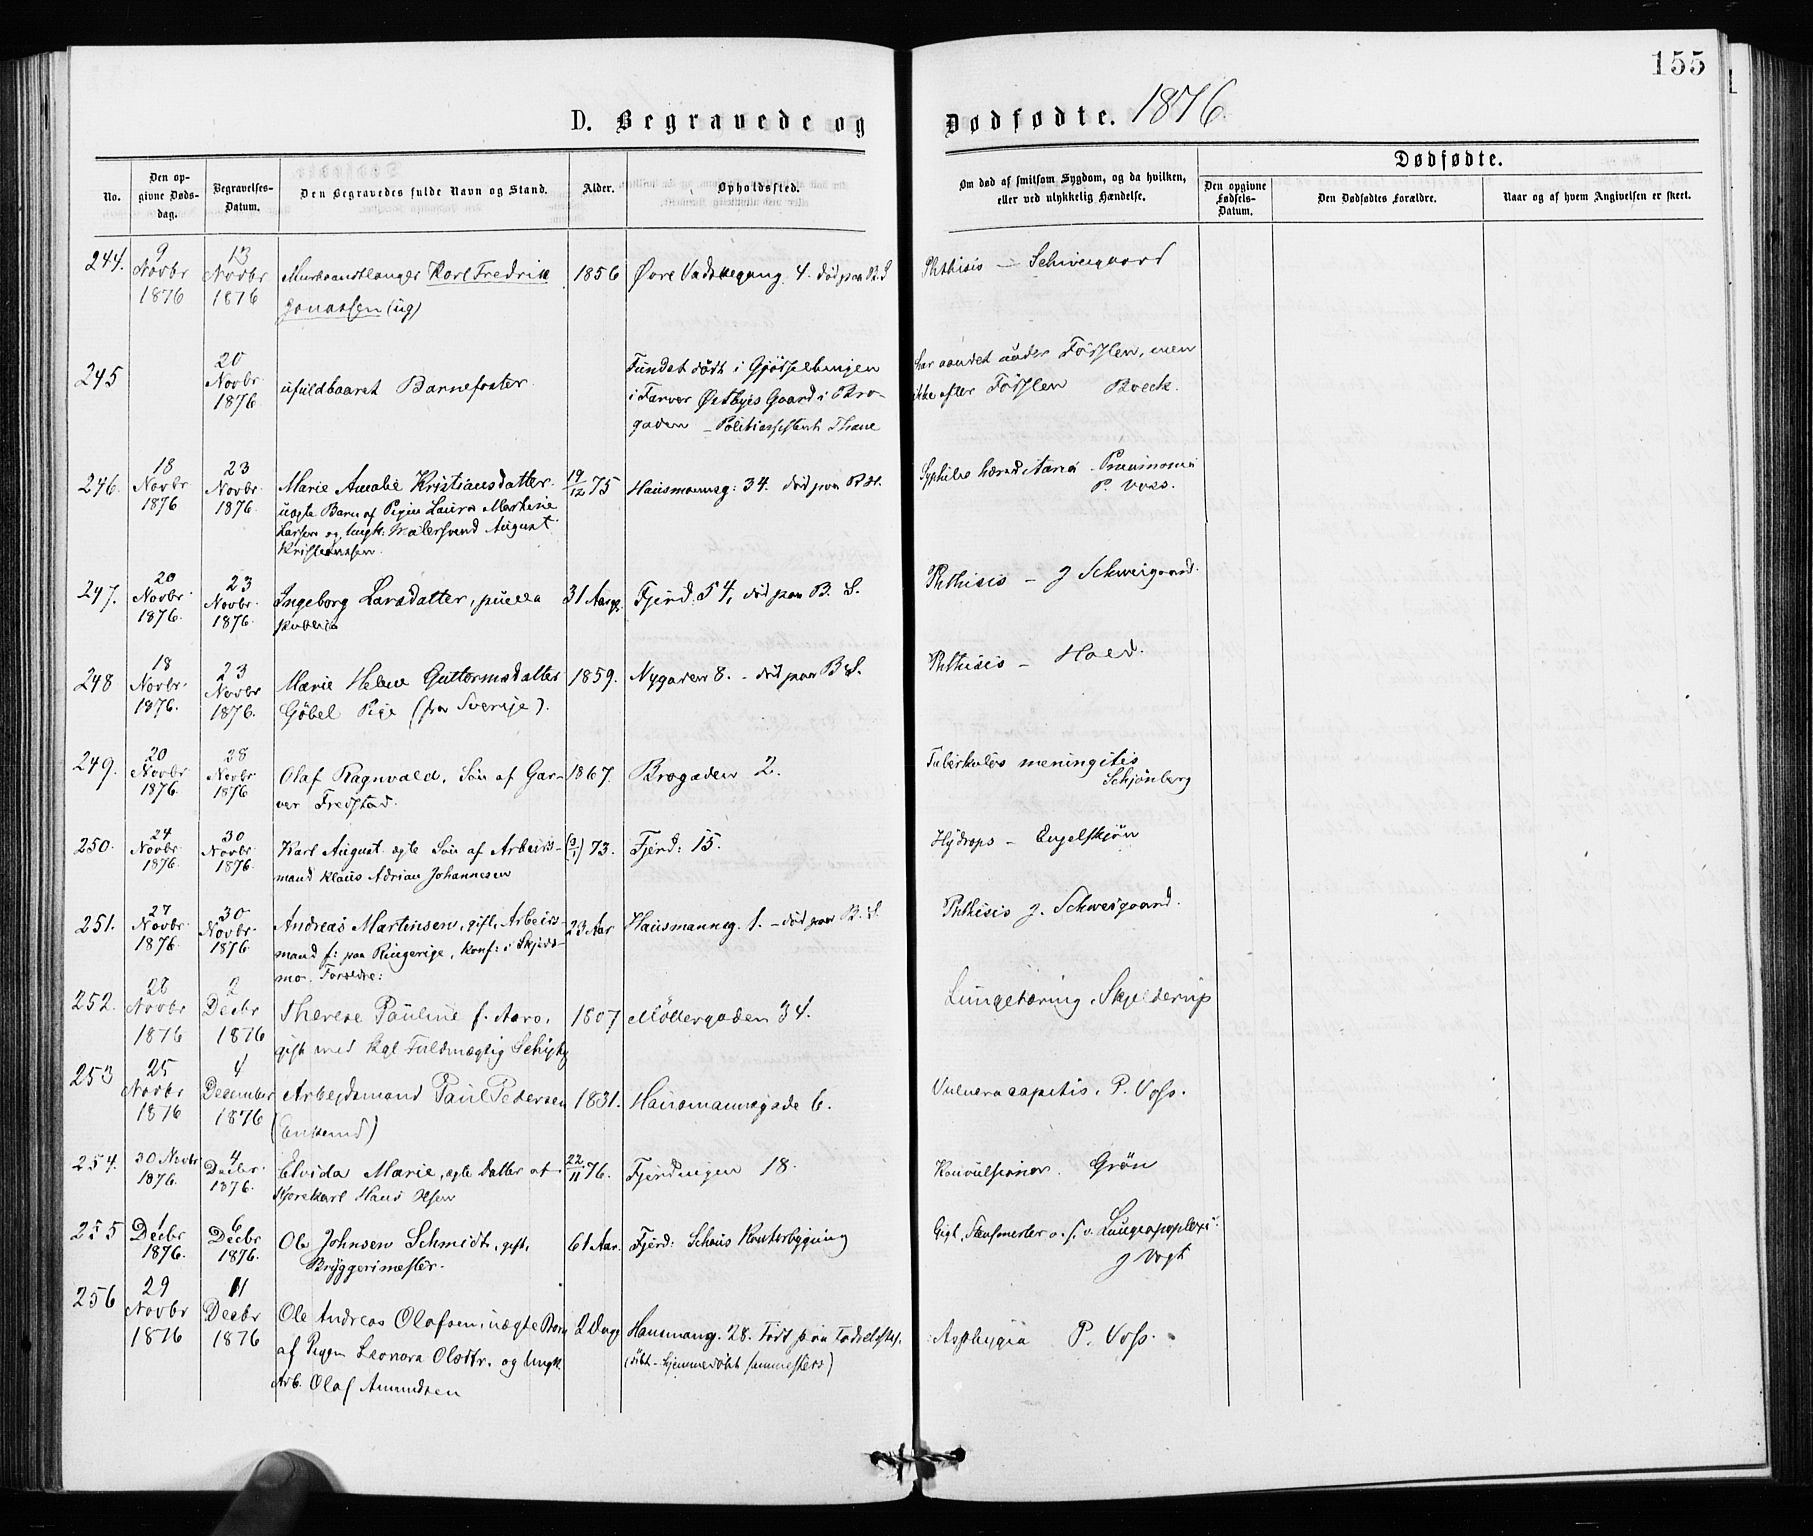 155
D. Begravede og Dødfødte. 1876.
No.
Den opgivne Dødsdag.
Begravelses-Datum.
Den Begravedes fulde Navn og Stand.
Alder.
Opholdssted.
Om død af smitsom Sygdom, og da hvilken, eller ved ulykkelig Hændelse.
Dødfødte.
Den opgivne Fødsels-Datum.
Den Dødfødtes Forældre.
Naar og af hvem Angivelsen er skeet.
244. 9 Novbr 1876 13 Novbr 1876 Murhaandlanger Karl Fredrik 1856 Øvre Vadskegang 4. død paa B. S Phthisis — Schweigaard
Jonassen (ug)
245 20 Novbr 1876 ufuldbaaret Barnefoster. Fundet dødt i Gjødselbingen Har aandet under Fødslen, men
i Farver Østbyes Gaard i Bro- ikke efter Fødslen Boeck.
gaden — Politiassistent Thrane
246. 18 Novbr 1876 23 Novbr 1876. Marie Amalie Kristiansdatter. 19/12 75 Hausmannsg: 34. død paa R. H. Syphilis hæreditaria Pneumonia
uægte Barn af Pigen Laura Martinie P. Voss.
Larsen og Ungk. Malersvend August
Kristiansen.
247. 20 Novbr. 1876. 23 Novbr. 1876. Ingeborg Larsdatter, puella 31 Aar gl. Fjerd. 54, død paa B. S. Phthisis — J Schweigaard.
publica
248 18 Novbr. 1876. 23 Novbr 1876. Marie Helene Guttormsdatter 1859. Nygaden 8. — død paa B. S. Phthisis — Hald.
Göbel Pige (fra Sverige).
249. 20 Novbr 1876. 28 Novbr 1876 Olaf Ragnvald, Søn af Gar- 1867. Brogaden 2. Tuberkuløs meningitis
ver Fredstad. Schjønberg
250. 24 Novbr 1876. 30 Novbr. 1876. Karl August ægte Søn af Arbeids- (9/1) 73. Fjerd: 15. Hydrops — Engelskjøn
mand Klaus Adrian Johannesen
251. 27 Novbr 1876 30 Novbr. 1876 Andreas Martinsen, gift, Arbeids- 23 Aar Hausmannsg. 1. — død paa B. S. Phthisis J. Schweigaard.
mand f: paa Ringerige, Konf: i Skjeds-
mo. Forældre:
252. 28 Novbr 1876 2 Decbr 1876 Therese Pauline f. Aars. 1807 Møllergaden 34. Lungetæring, Skjelderup
gift med Kgl Fuldmægtig
253 25 Novbr 1876 4 December 1876 Arbejdsmand Paul Pedersen 1831. Hausmannsgade 6. Vulnera capitis, P. Voss.
(Enkemd)
254. 30 Novbr 1876. 4 Decbr. 1876. Elvida Marie, ægte Datter af 22/11 76. Fjerdingen 18. Konvulsioner. Grøn
Kjørekarl Hans Olsen
255 1 Decbr 1876. 6 Decbr 1876. Ole Johnsen Schmidt, gift, 61 Aar. Fjerd: Schous Kontorbygning Gigt, o. s. v. Lungeapoplexi.
Bryggerimester. J Vogt
256 29 Novbr 1876 11 Decbr 1876 Ole Andreas Olafsen, uægte Barn 2 Dage Hausmansg. 28. Født paa Fødselsst. Asphyxia P. Voss.
af Pigen Leonora Olsdtr. og Ungk. (døbt — hjemmedøbt sammesteds)
Arb. Olaf Amundsen